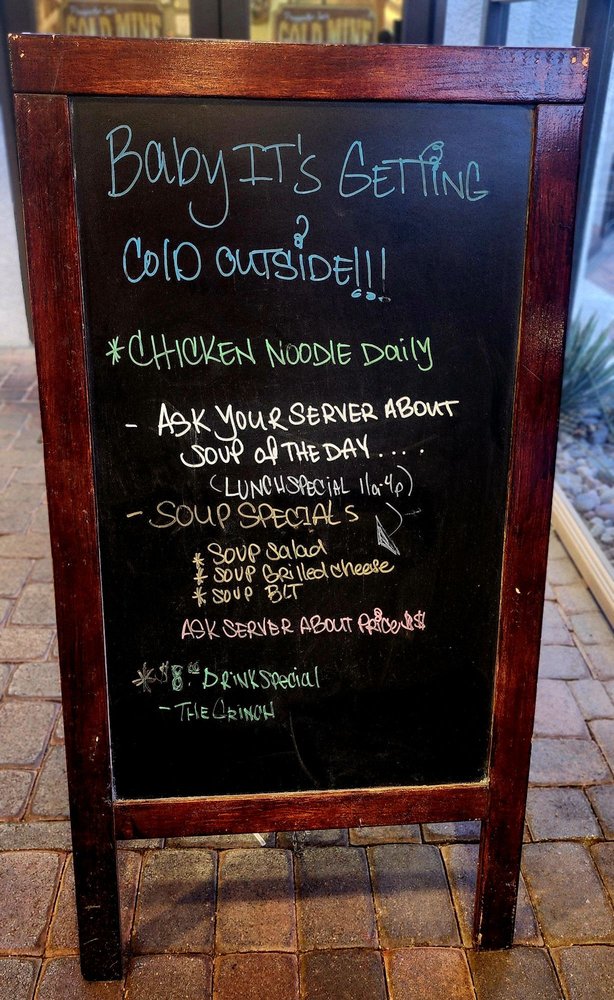 GOLD MINE
GOLD MINE
Baby IT's GETTING
COLD OUTSIDE!!!
*CHICKEN NOODLE Daily
- ASK YOUR SERVER ABOUT
SOUP of THE DAY....
(LUNCH SPECIAL 11a-4p)
- SOUP SPECIALS
* SOUP Salad
* SOUP Grilled Cheese
* SOUP BLT
ASK SERVER ABOUT PRICE $$
*$8.00 DRINK Special
- THE GRINCH